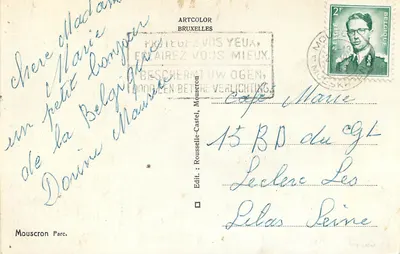 ARTCOLOR
BRUXELLES
PROTEGEZ VOS YEUX,
ECLAIREZ VOUS MIEUX
BESCHERM UW OGEN,
DOOR EEN BETERE VERLICHTING
2F
MOUSCRON
Chere Madame
Marie
un petit bonjour
de la Belgique
Dorine Maurice
Café Marie
15 BD du Cgl
Leclerc Les
Lilas Seine
Edit. : Rousselle-Castel, Mouscron
Mouscron Parc.